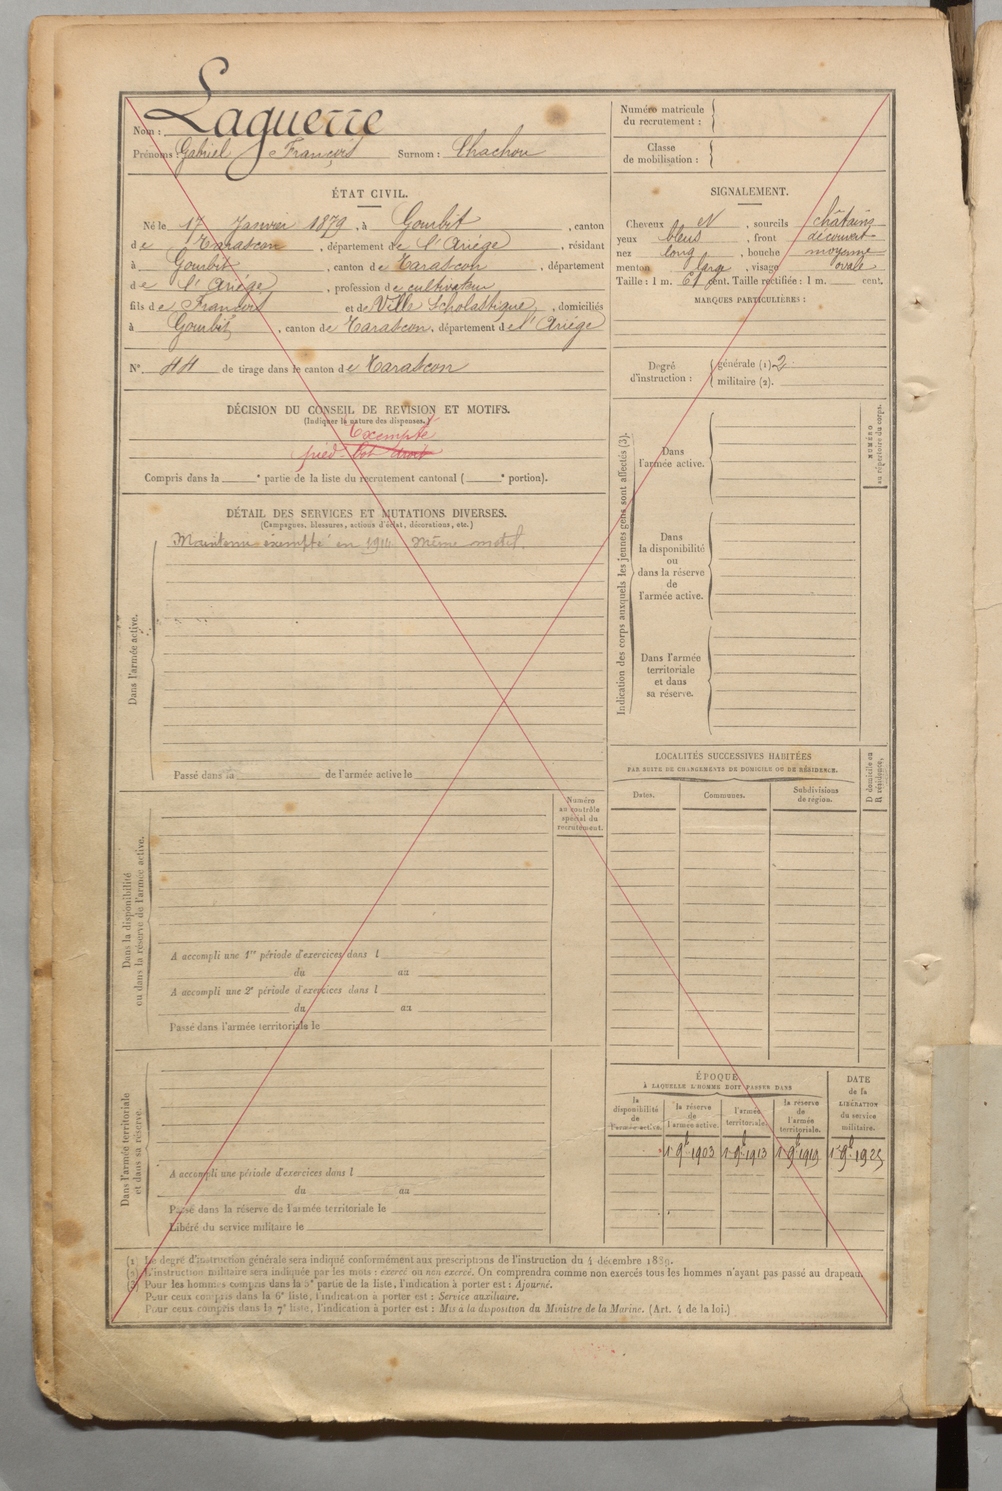 Nom : Laguerre
Prénoms : Gabriel François Surnom : Chachou
ÉTAT CIVIL.
Né le 17 Janvier 1879, à Gourbit, canton
de Tarascon, département de l'Ariège, résidant
à Gourbit, canton de Tarascon, département
de l'Ariège, profession de cultivateur
fils de François et de Ville Scholastique, domiciliés
à Gourbit, canton de Tarascon, département de l'Ariège
N° 44 de tirage dans le canton de Tarascon
DÉCISION DU CONSEIL DE REVISION ET MOTIFS.
(Indiquer la nature des dispenses.)
Exempté
pied-bot droit
Compris dans la ° partie de la liste du recrutement cantonal ( ° portion).
DÉTAIL DES SERVICES ET MUTATIONS DIVERSES.
(Campagnes, blessures, actions d'éclat, décorations, etc.)
Maintenu exempté en Même motif.
Dans l'armée active.
Passé dans la de l'armée active le
Numéro
au contrôle
spécial du
recrutement.
Dans la disponibilité
ou dans la réserve de l'armée active.
A accompli une 1re période d'exercices dans l
du au
A accompli une 2e période d'exercices dans l
du au
Passé dans l'armée territoriale le
Dans l'armée territoriale
et dans sa réserve.
A accompli une période d'exercices dans l
du au
Passé dans la réserve de l'armée territoriale le
Libéré du service militaire le
Numéro matricule
du recrutement :
Classe
de mobilisation :
SIGNALEMENT.
Cheveux N, sourcils châtains
yeux bleus, front découvert
nez long, bouche moyenne
menton large, visage ovale
Taille : 1 m. 61 cent. Taille rectifiée : 1 m. cent.
MARQUES PARTICULIÈRES :
Degré
d'instruction :
générale (1). 2
militaire (2).
Indication des corps auxquels les jeunes gens sont affectés (3).
Dans
l'armée active.
NUMÉRO
au répertoire du corps.
Dans
la disponibilité
ou
dans la réserve
de
l'armée active.
Dans l'armée
territoriale
et dans
sa réserve.
LOCALITÉS SUCCESSIVES HABITÉES
PAR SUITE DE CHANGEMENTS DE DOMICILE OU DE RÉSIDENCE.
D domicile ou
R résidence.
Dates. Communes. Subdivisions
de région.
ÉPOQUE
À LAQUELLE L'HOMME DOIT PASSER DANS
DATE
de la
LIBÉRATION
du service
militaire.
la
disponibilité
de
l'armée active.
la réserve
de
l'armée active.
l'armée
territoriale.
la réserve
de
l'armée
territoriale.
1 9b 1903 1 9b 1913 1 9b 1919 1 9b 1925
(1) Le degré d'instruction générale sera indiqué conformément aux prescriptions de l'instruction du 4 décembre 1889.
(2) L'instruction militaire sera indiquée par les mots : exercé ou non exercé. On comprendra comme non exercés tous les hommes n'ayant pas passé au drapeau.
(3) Pour les hommes compris dans la 5e partie de la liste, l'indication à porter est : Ajourné.
Pour ceux compris dans la 6e liste, l'indication à porter est : Service auxiliaire.
Pour ceux compris dans la 7e liste, l'indication à porter est : Mis à la disposition du Ministre de la Marine. (Art. 4 de la loi.)